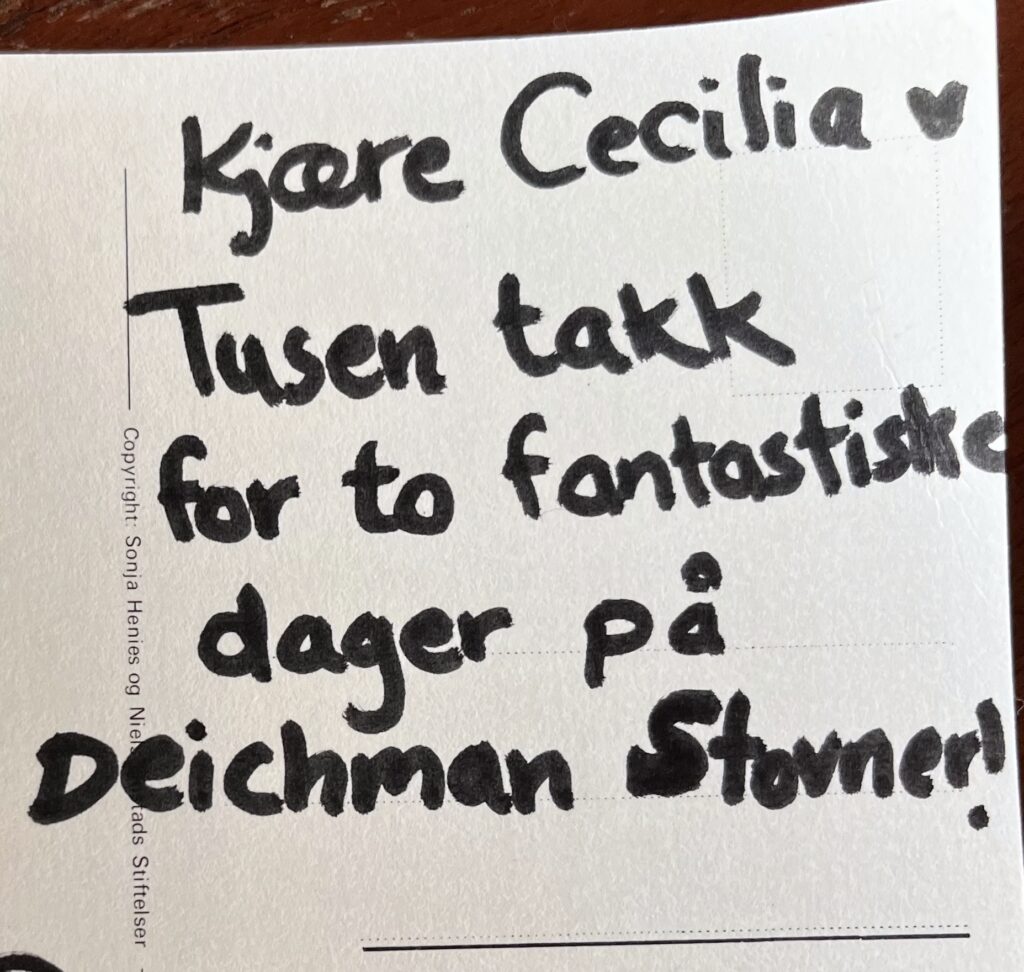 Kjære Cecilia ♥
Tusen takk
for to fantastiske
dager på
Deichman Stovner!
Copyright: Sonja Henies og Niels tads Stiftelser